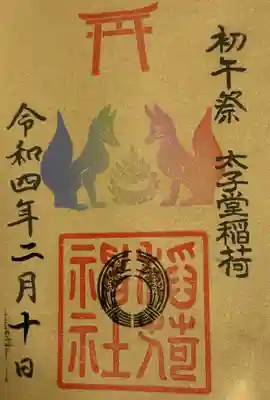 初午祭 太子堂稲荷
令和四年二月十日
稲荷
神社